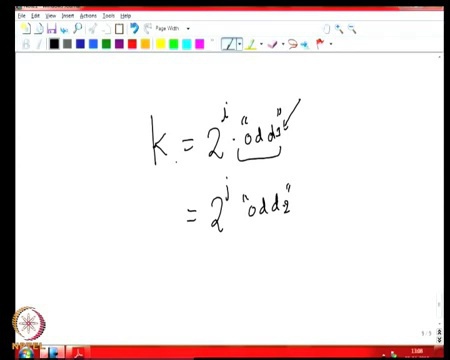 File Edit View Insert Actions Tools Help
Page Width
B
k = 2^i . "odd1"
= 2^j "odd2"
NPTEL